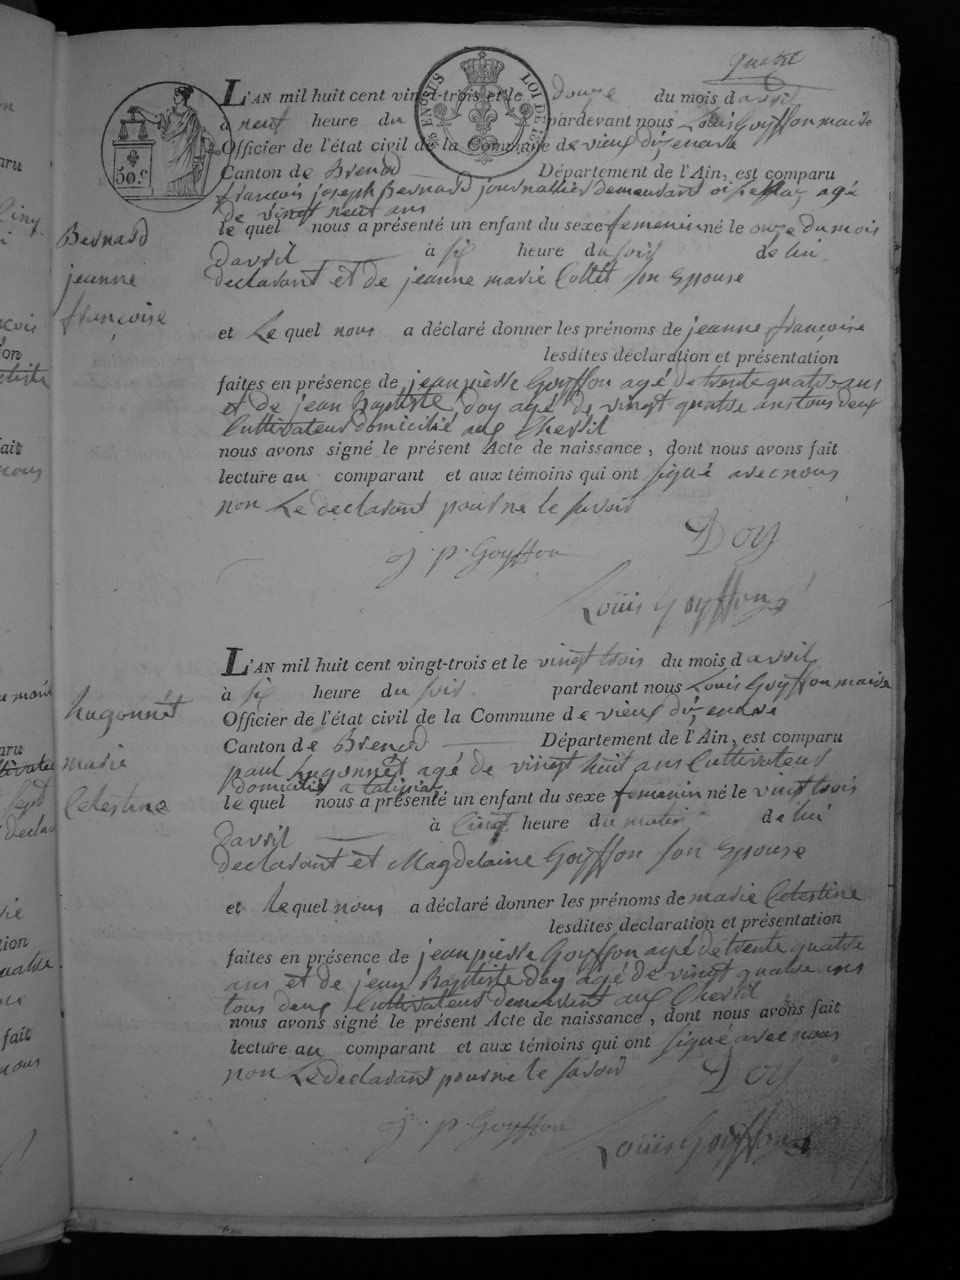 quatre
L'AN mil huit cent vingt-trois et le douze du mois d avril
à neuf heure du pardevant nous Louis Goyffon maire
Officier de l'état civil de la Commune de vieux dizenave
Canton de Brenod Département de l'Ain, est comparu
françois joseph Bernard journallier demeurant agé
de vingt neuf ans
le quel nous a présenté un enfant du sexe femenin né le onze du mois
davril à six heure du soir de lui
declarant et de jeanne marie Collet son Epouse
et Le quel nous a déclaré donner les prénoms de jeanne françoise
lesdites déclaration et présentation
faites en présence de jean pierre Goyffon agé de trente quatre ans
et de jean Baptiste doy agé de vingt quatre ans tous deux
Cultivateur domicilié aux Chevril
nous avons signé le présent Acte de naissance, dont nous avons fait
lecture au comparant et aux témoins qui ont signé avec nous
non Le declarant pour ne le savoir
j. p. Goyffon Doy
Louis Goyffon
Bernard
jeanne
françoise
50.c
LOI DE
L'AN mil huit cent vingt-trois et le vingt trois du mois d avril
à six heure du soir pardevant nous Louis Goyffon maire
Officier de l'état civil de la Commune de vieux dizenave
Canton de Brenod Département de l'Ain, est comparu
paul hugonnet agé de vingt huit ans Cultivateur
domicilié a talissiat
le quel nous a présenté un enfant du sexe femenin né le vingt trois
davril à Cinq heure du matin de lui
declarant et Magdelaine Goyffon son Epouse
et lequel nous a déclaré donner les prénoms de marie Celestine
lesdites declaration et présentation
faites en présence de jean pierre Goyffon agé de trente quatre
ans et de jean Baptiste doy agé de vingt quatre ans
tous deux Cultivateur demeurant aux Chevril
nous avons signé le présent Acte de naissance, dont nous avons fait
lecture au comparant et aux témoins qui ont signé avec nous
non Le declarant pour ne le savoir
j. p. Goyffon Doy
Louis Goyffon
hugonnet
marie
Celestine